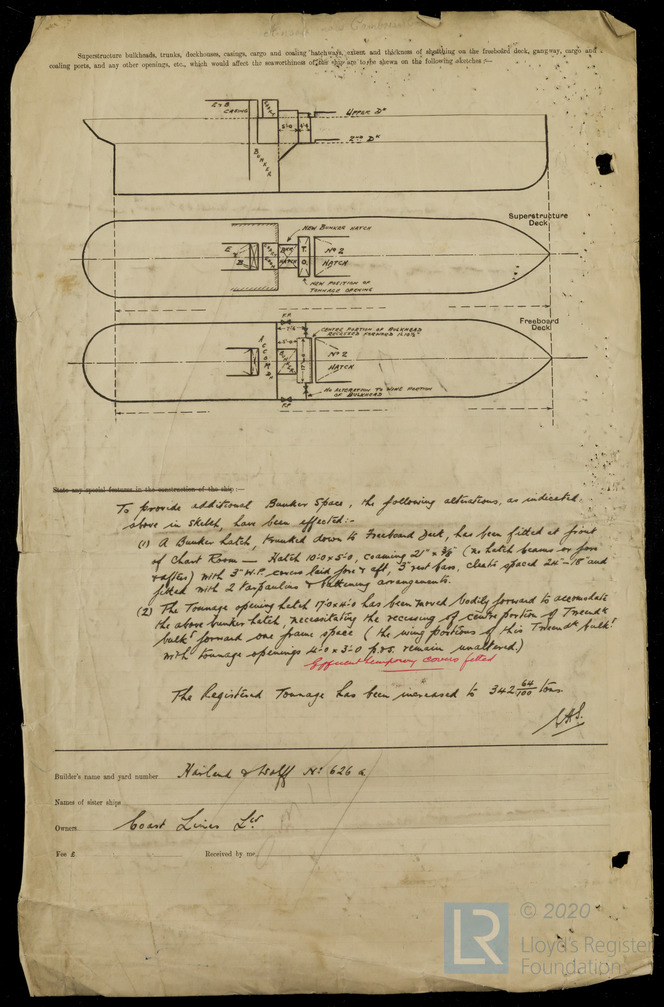 Superstructure bulkheads, trunks, deckhouses, casings, cargo and coaling hatchways, extent and thickness of sheathing on the freeboard deck, gangway, cargo and
coaling ports, and any other openings, etc., which would affect the seaworthiness of the ship are to be shewn on the following sketches:—
E & B
CASING
UPPER DK
5'-0
4'-0
2ND DK
BUNKER
Superstructure
Deck
NEW BUNKER HATCH
E
&
B
BKR
HATCH
T.
O.
No 2
HATCH
NEW POSITION OF
TONNAGE OPENING
Freeboard
Deck
F.P.
CENTRE PORTION OF BULKHEAD
RECESSED FORWARD
5'-0
ACCOMDN
No 2
HATCH
NO ALTERATION TO WING PORTION
OF BULKHEAD
F.P.
State any special features in the construction of the ship:—
To provide additional Bunker Space, the following alterations, as indicated
above in sketch, have been effected:-
(1) A Bunker hatch, trunked down to Freeboard Deck, has been fitted at front
of Chart Room — Hatch 10'-0 x 5'-0, coaming 21" x 3/8" (no hatch beams or fore
& afters) with 3" W.P. covers laid fore & aft, 3" rest bars, cleats spaced 24"-18" and
fitted with 2 Tarpaulins & battening arrangements.
(2) The Tonnage opening hatch 17'-0 x 4'-0 has been moved bodily forward to accomodate
the above bunker hatch, necessitating the recessing of centre portion of Tweendk
bulkd forward one frame space (the wing portions of this Tweendk bulkd
with tonnage openings 4'-0 x 3'-0 p. & s. remain unaltered.)
Efficient temporary covers fitted
The Registered Tonnage has been increased to 342 64/100 tons.
Builder's name and yard number Harland & Wolff No 626 a
Names of sister ships
Owners Coast Lines Ld.
Fee £
Received by me
LR
© 2020
Lloyd's Register
Foundation